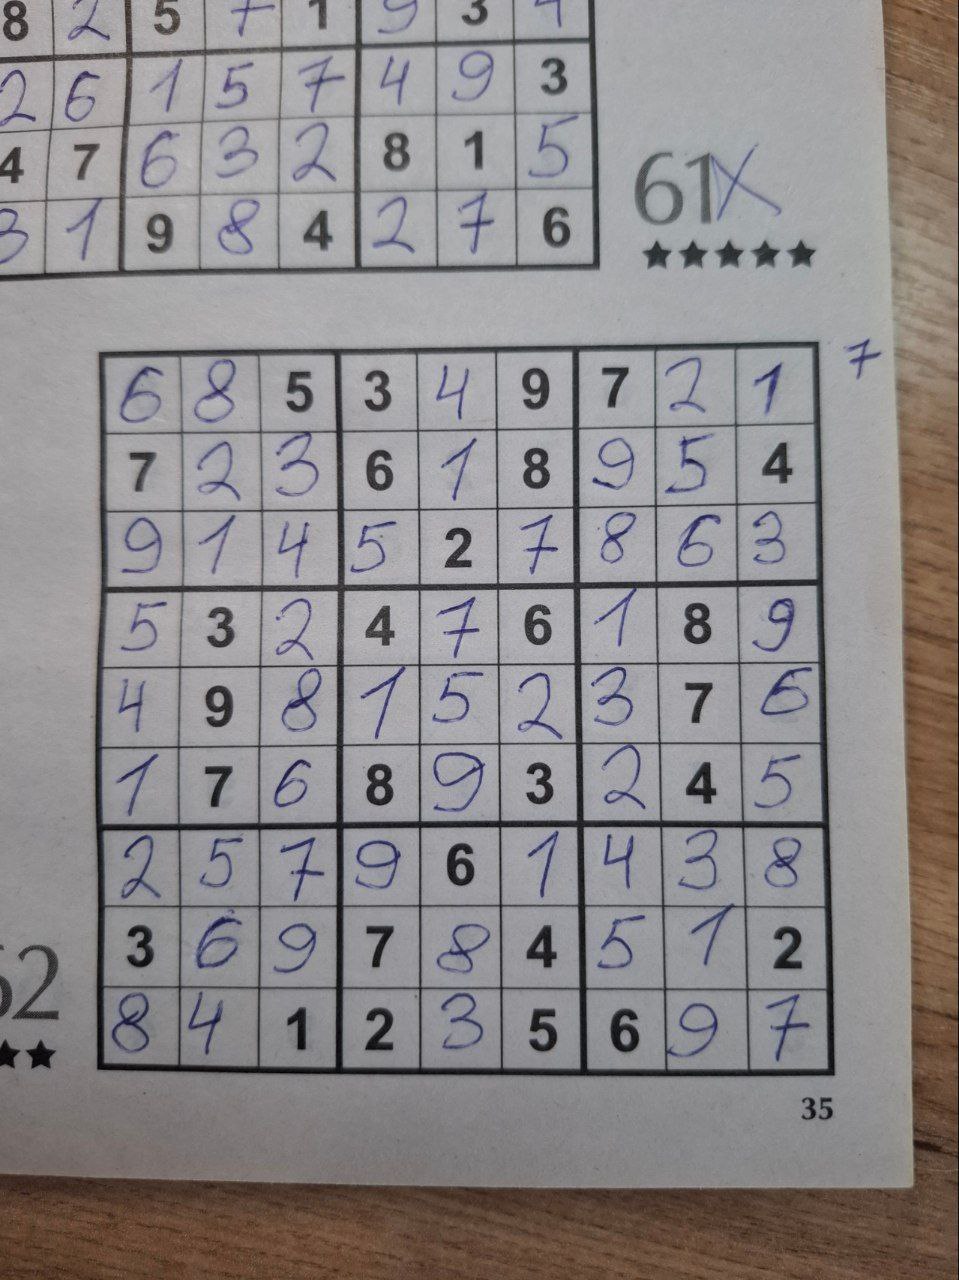 8 2 5 7 1 9 3 4
2 6 1 5 7 4 9 3
4 7 6 3 2 8 1 5
3 1 9 8 4 2 7 6
61X
★★★★★
7
6 8 5 3 4 9 7 2 1
7 2 3 6 1 8 9 5 4
9 1 4 5 2 7 8 6 3
5 3 2 4 7 6 1 8 9
4 9 8 1 5 2 3 7 6
1 7 6 8 9 3 2 4 5
2 5 7 9 6 1 4 3 8
3 6 9 7 8 4 5 1 2
8 4 1 2 3 5 6 9 7
62
★★
35